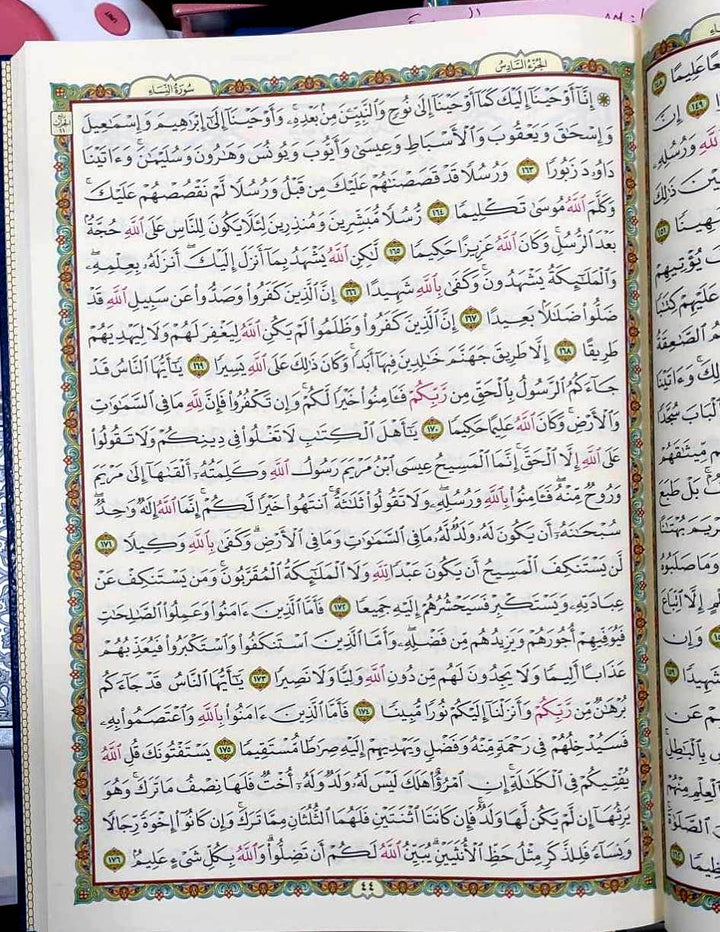 سُورَةُ النِّسَاءِ
الجُزْءُ السَّادِسُ
۞ إِنَّآ أَوْحَيْنَآ إِلَيْكَ كَمَآ أَوْحَيْنَآ إِلَىٰ نُوحٍ وَٱلنَّبِيِّـۧنَ مِنۢ بَعْدِهِۦۚ وَأَوْحَيْنَآ إِلَىٰٓ إِبْرَٰهِيمَ وَإِسْمَٰعِيلَ
وَإِسْحَٰقَ وَيَعْقُوبَ وَٱلْأَسْبَاطِ وَعِيسَىٰ وَأَيُّوبَ وَيُونُسَ وَهَٰرُونَ وَسُلَيْمَٰنَۚ وَءَاتَيْنَا
دَاوُۥدَ زَبُورًا ١٦٣ وَرُسُلًا قَدْ قَصَصْنَٰهُمْ عَلَيْكَ مِن قَبْلُ وَرُسُلًا لَّمْ نَقْصُصْهُمْ عَلَيْكَۚ
وَكَلَّمَ ٱللَّهُ مُوسَىٰ تَكْلِيمًا ١٦٤ رُّسُلًا مُّبَشِّرِينَ وَمُنذِرِينَ لِئَلَّا يَكُونَ لِلنَّاسِ عَلَى ٱللَّهِ حُجَّةٌۢ
بَعْدَ ٱلرُّسُلِۚ وَكَانَ ٱللَّهُ عَزِيزًا حَكِيمًا ١٦٥ لَّٰكِنِ ٱللَّهُ يَشْهَدُ بِمَآ أَنزَلَ إِلَيْكَۖ أَنزَلَهُۥ بِعِلْمِهِۦۖ
وَٱلْمَلَٰٓئِكَةُ يَشْهَدُونَۚ وَكَفَىٰ بِٱللَّهِ شَهِيدًا ١٦٦ إِنَّ ٱلَّذِينَ كَفَرُوا۟ وَصَدُّوا۟ عَن سَبِيلِ ٱللَّهِ قَدْ
ضَلُّوا۟ ضَلَٰلًۢا بَعِيدًا ١٦٧ إِنَّ ٱلَّذِينَ كَفَرُوا۟ وَظَلَمُوا۟ لَمْ يَكُنِ ٱللَّهُ لِيَغْفِرَ لَهُمْ وَلَا لِيَهْدِيَهُمْ
طَرِيقًا ١٦٨ إِلَّا طَرِيقَ جَهَنَّمَ خَٰلِدِينَ فِيهَآ أَبَدًاۚ وَكَانَ ذَٰلِكَ عَلَى ٱللَّهِ يَسِيرًا ١٦٩ يَٰٓأَيُّهَا ٱلنَّاسُ قَدْ
جَآءَكُمُ ٱلرَّسُولُ بِٱلْحَقِّ مِن رَّبِّكُمْ فَـَٔامِنُوا۟ خَيْرًا لَّكُمْۚ وَإِن تَكْفُرُوا۟ فَإِنَّ لِلَّهِ مَا فِى ٱلسَّمَٰوَٰتِ
وَٱلْأَرْضِۚ وَكَانَ ٱللَّهُ عَلِيمًا حَكِيمًا ١٧٠ يَٰٓأَهْلَ ٱلْكِتَٰبِ لَا تَغْلُوا۟ فِى دِينِكُمْ وَلَا تَقُولُوا۟
عَلَى ٱللَّهِ إِلَّا ٱلْحَقَّۚ إِنَّمَا ٱلْمَسِيحُ عِيسَى ٱبْنُ مَرْيَمَ رَسُولُ ٱللَّهِ وَكَلِمَتُهُۥٓ أَلْقَىٰهَآ إِلَىٰ مَرْيَمَ
وَرُوحٌ مِّنْهُۖ فَـَٔامِنُوا۟ بِٱللَّهِ وَرُسُلِهِۦۖ وَلَا تَقُولُوا۟ ثَلَٰثَةٌۚ ٱنتَهُوا۟ خَيْرًا لَّكُمْۚ إِنَّمَا ٱللَّهُ إِلَٰهٌ وَٰحِدٌۖ
سُبْحَٰنَهُۥٓ أَن يَكُونَ لَهُۥ وَلَدٌۘ لَّهُۥ مَا فِى ٱلسَّمَٰوَٰتِ وَمَا فِى ٱلْأَرْضِۗ وَكَفَىٰ بِٱللَّهِ وَكِيلًا ١٧١
لَّن يَسْتَنكِفَ ٱلْمَسِيحُ أَن يَكُونَ عَبْدًا لِّلَّهِ وَلَا ٱلْمَلَٰٓئِكَةُ ٱلْمُقَرَّبُونَۚ وَمَن يَسْتَنكِفْ عَنْ
عِبَادَتِهِۦ وَيَسْتَكْبِرْ فَسَيَحْشُرُهُمْ إِلَيْهِ جَمِيعًا ١٧٢ فَأَمَّا ٱلَّذِينَ ءَامَنُوا۟ وَعَمِلُوا۟ ٱلصَّٰلِحَٰتِ
فَيُوَفِّيهِمْ أُجُورَهُمْ وَيَزِيدُهُم مِّن فَضْلِهِۦۖ وَأَمَّا ٱلَّذِينَ ٱسْتَنكَفُوا۟ وَٱسْتَكْبَرُوا۟ فَيُعَذِّبُهُمْ
عَذَابًا أَلِيمًا وَلَا يَجِدُونَ لَهُم مِّن دُونِ ٱللَّهِ وَلِيًّا وَلَا نَصِيرًا ١٧٣ يَٰٓأَيُّهَا ٱلنَّاسُ قَدْ جَآءَكُم
بُرْهَٰنٌ مِّن رَّبِّكُمْ وَأَنزَلْنَآ إِلَيْكُمْ نُورًا مُّبِينًا ١٧٤ فَأَمَّا ٱلَّذِينَ ءَامَنُوا۟ بِٱللَّهِ وَٱعْتَصَمُوا۟ بِهِۦ
فَسَيُدْخِلُهُمْ فِى رَحْمَةٍ مِّنْهُ وَفَضْلٍ وَيَهْدِيهِمْ إِلَيْهِ صِرَٰطًا مُّسْتَقِيمًا ١٧٥ يَسْتَفْتُونَكَ قُلِ ٱللَّهُ
يُفْتِيكُمْ فِى ٱلْكَلَٰلَةِۚ إِنِ ٱمْرُؤٌا۟ هَلَكَ لَيْسَ لَهُۥ وَلَدٌ وَلَهُۥٓ أُخْتٌ فَلَهَا نِصْفُ مَا تَرَكَۚ وَهُوَ
يَرِثُهَآ إِن لَّمْ يَكُن لَّهَا وَلَدٌۚ فَإِن كَانَتَا ٱثْنَتَيْنِ فَلَهُمَا ٱلثُّلُثَانِ مِمَّا تَرَكَۚ وَإِن كَانُوٓا۟ إِخْوَةً رِّجَالًا
وَنِسَآءً فَلِلذَّكَرِ مِثْلُ حَظِّ ٱلْأُنثَيَيْنِۗ يُبَيِّنُ ٱللَّهُ لَكُمْ أَن تَضِلُّوا۟ۗ وَٱللَّهُ بِكُلِّ شَىْءٍ عَلِيمٌۢ ١٧٦
٤٤